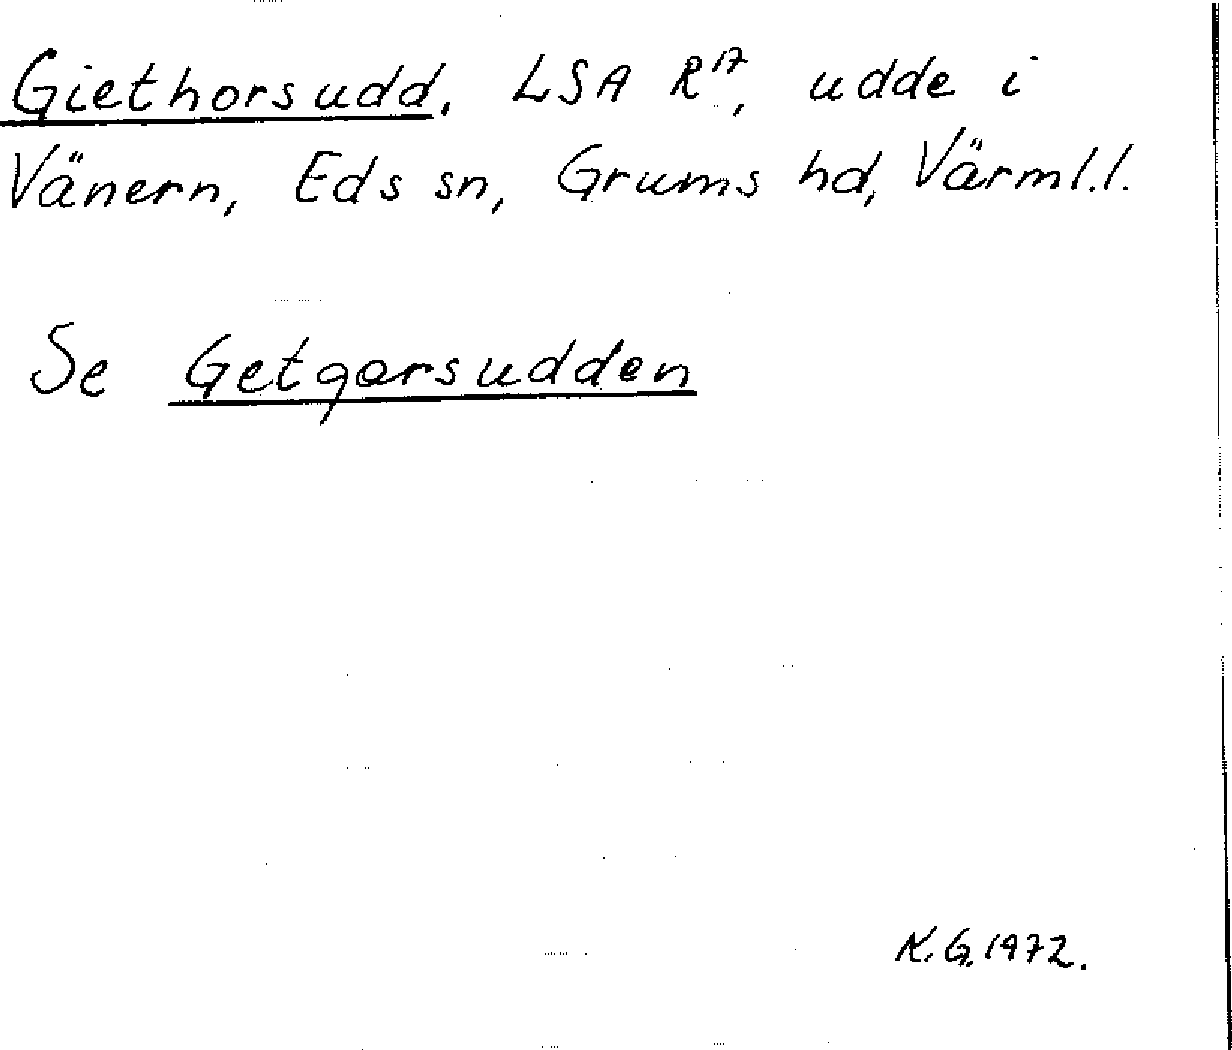 Giethorsudd, LSA R¹⁷, udde i
Vänern, Eds sn, Grums hd, Värml.l.
Se Getgorsudden
K.G. 1972.